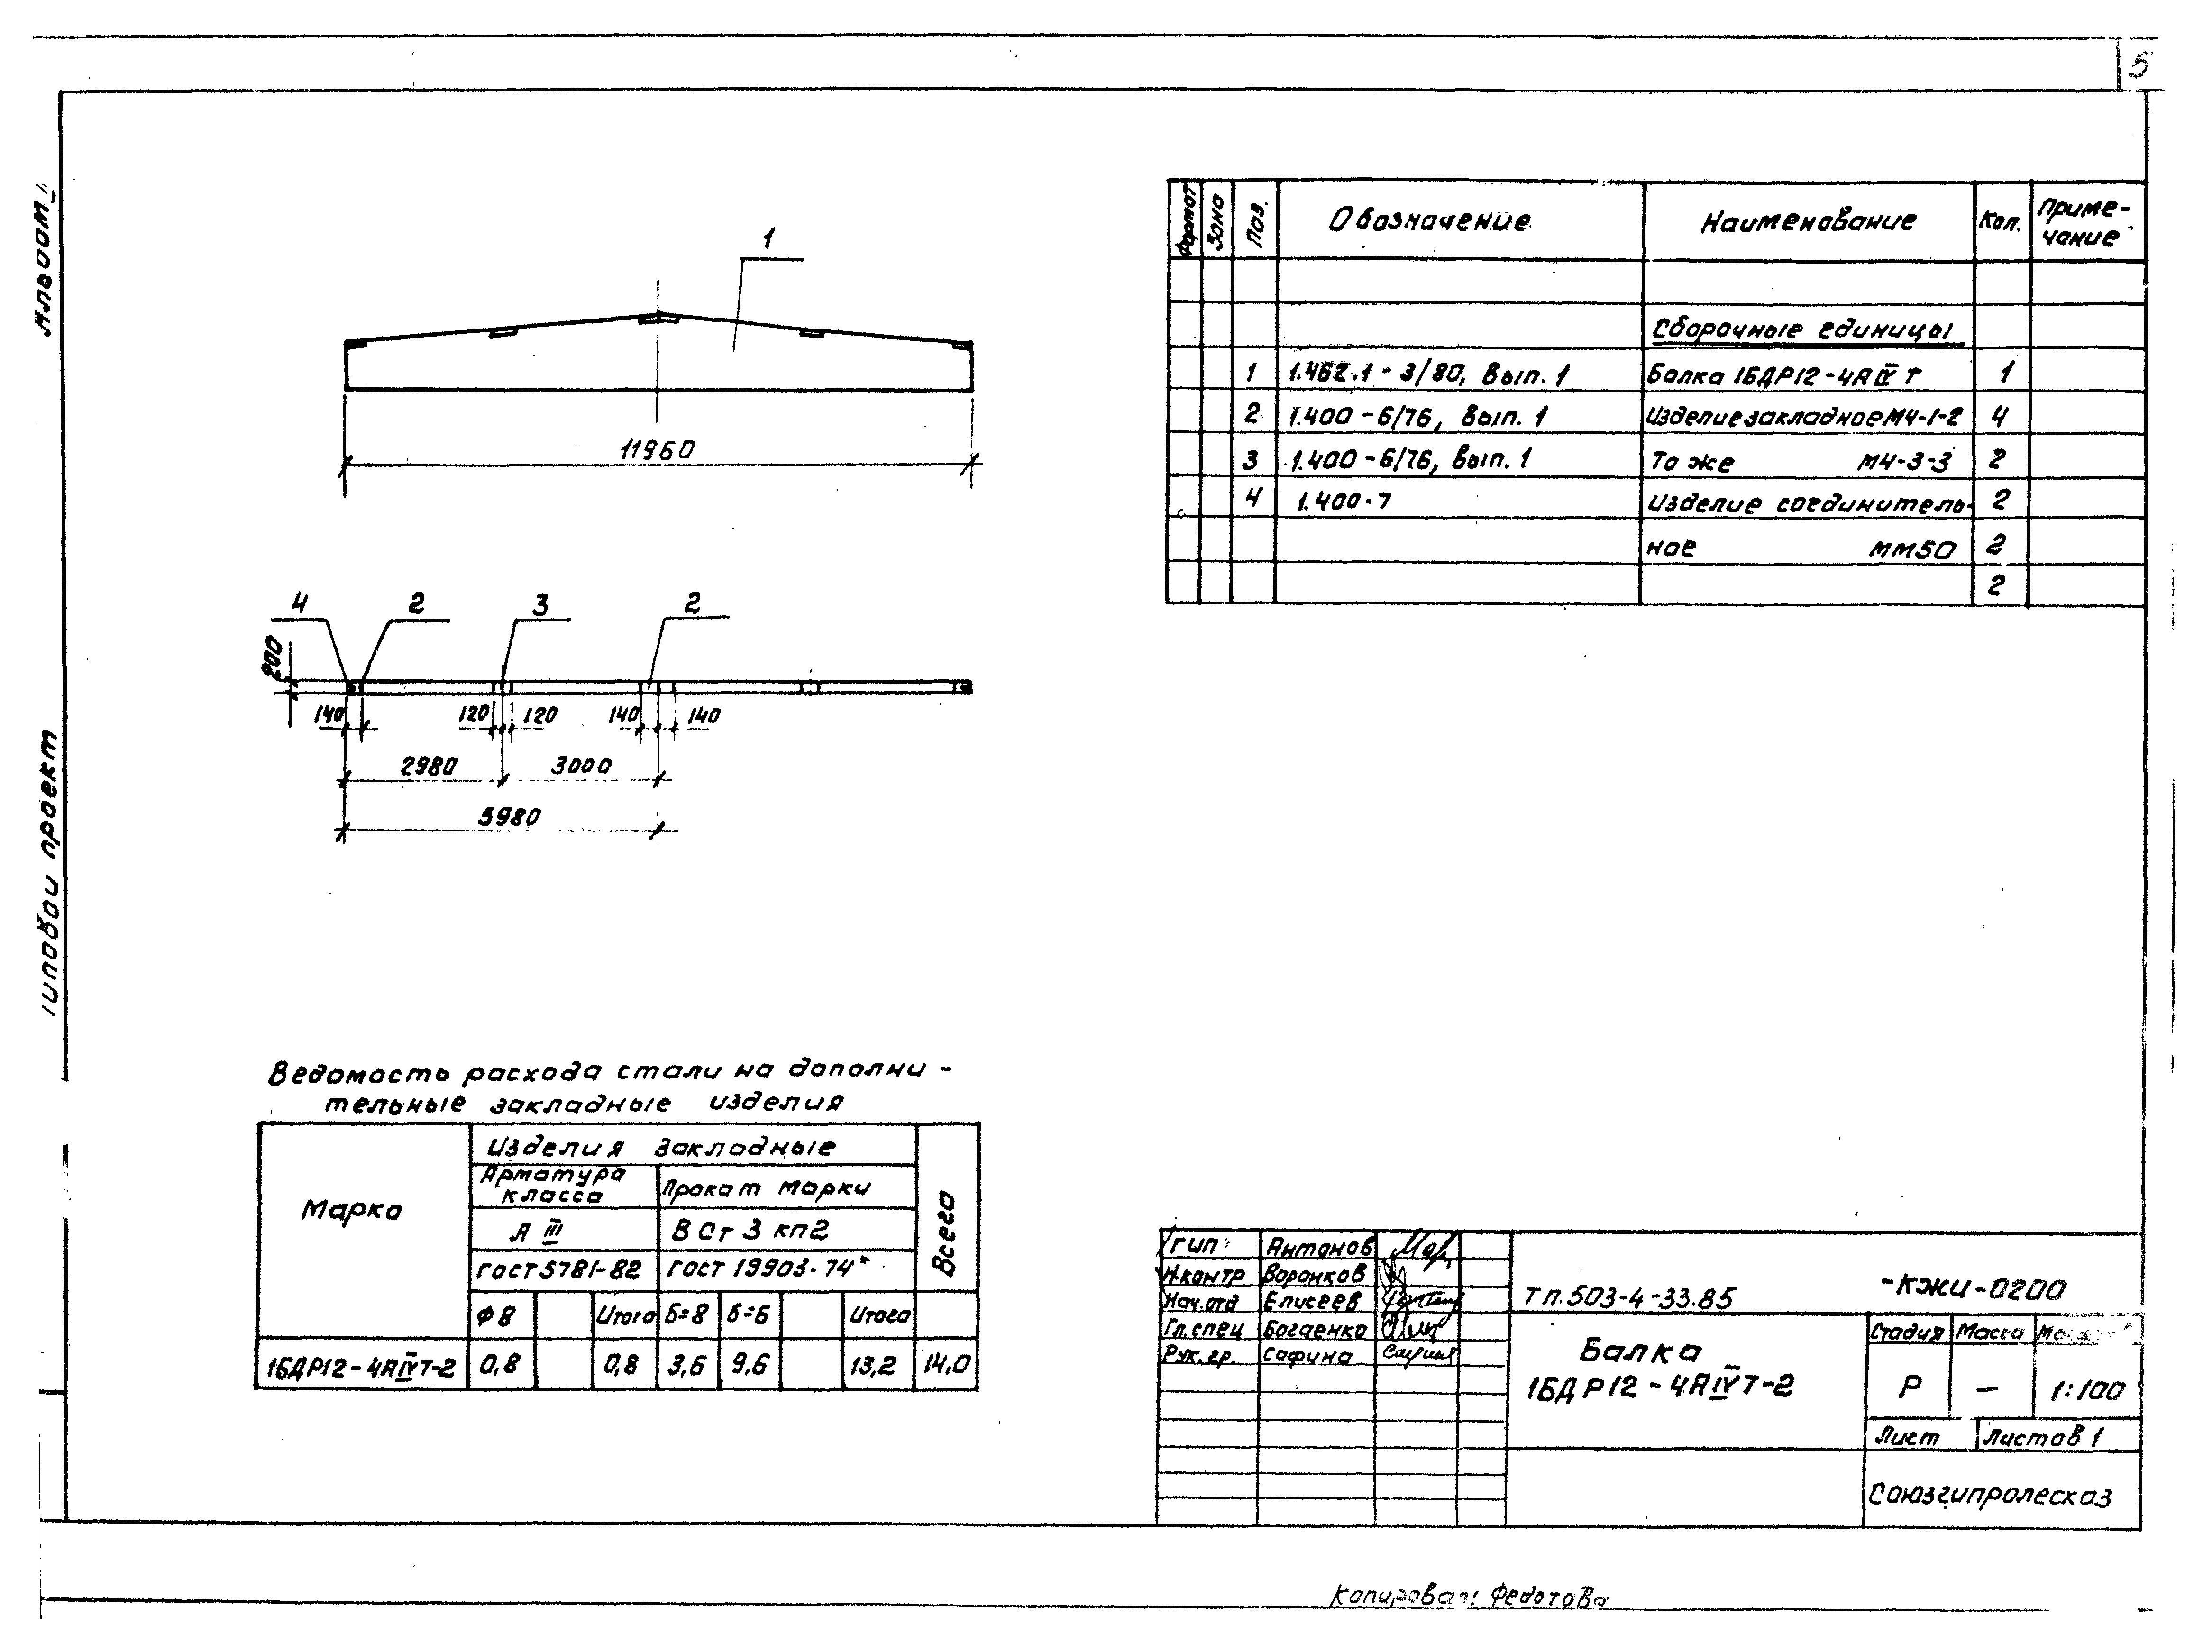 5
Альбом
Типовой проект
1
11960
4 2 3 2
200
140 120 120 140 140
2980 3000
5980
Формат Зона Поз. Обозначение Наименование Кол. Приме-
чание
Сборочные единицы
1 1.462.1-3/80, вып. 1 Балка 1БДР12-4АIVТ 1
2 1.400-6/76, вып. 1 Изделие закладное М4-1-2 4
3 1.400-6/76, вып. 1 То же М4-3-3 2
4 1.400-7 Изделие соединитель- 2
ное ММ50 2
2
Ведомость расхода стали на дополни-
тельные закладные изделия
Марка Изделия закладные Всего
Арматура
класса Прокат марки
А III ВСт3кп2
ГОСТ 5781-82 ГОСТ 19903-74*
Ф8 Итого δ=8 δ=6 Итого
1БДР12-4АIVТ-2 0,8 0,8 3,6 9,6 13,2 14,0
ГИП Антонов
Н.контр Воронков
Нач.отд Елисеев
Гл.спец Богаенко
Рук.гр. Сафина
ТП.503-4-33.85 -КЖИ-0200
Балка
1БДР12-4АIVТ-2
Стадия Масса
Р — 1:100
Лист Листов 1
Союзгипролесхоз
Копировал: Федотова